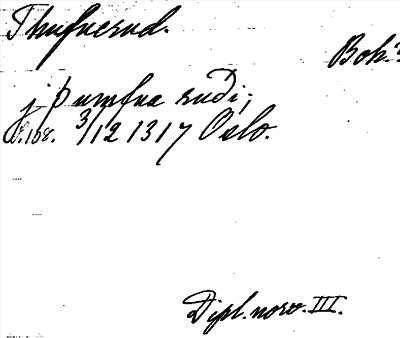 Thufuerud.
Boh.
j þumfua rudi;
S.108. 3/12 1317 Oslo.
Dipl. norv. III.